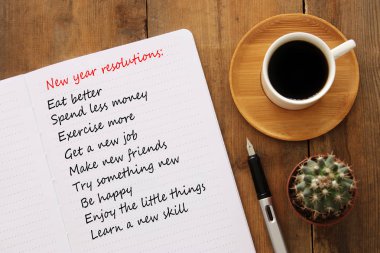 New year resolutions:
Eat better
Spend less money
Exercise more
Get a new job
Make new friends
Try something new
Be happy
Enjoy the little things
Learn a new skill